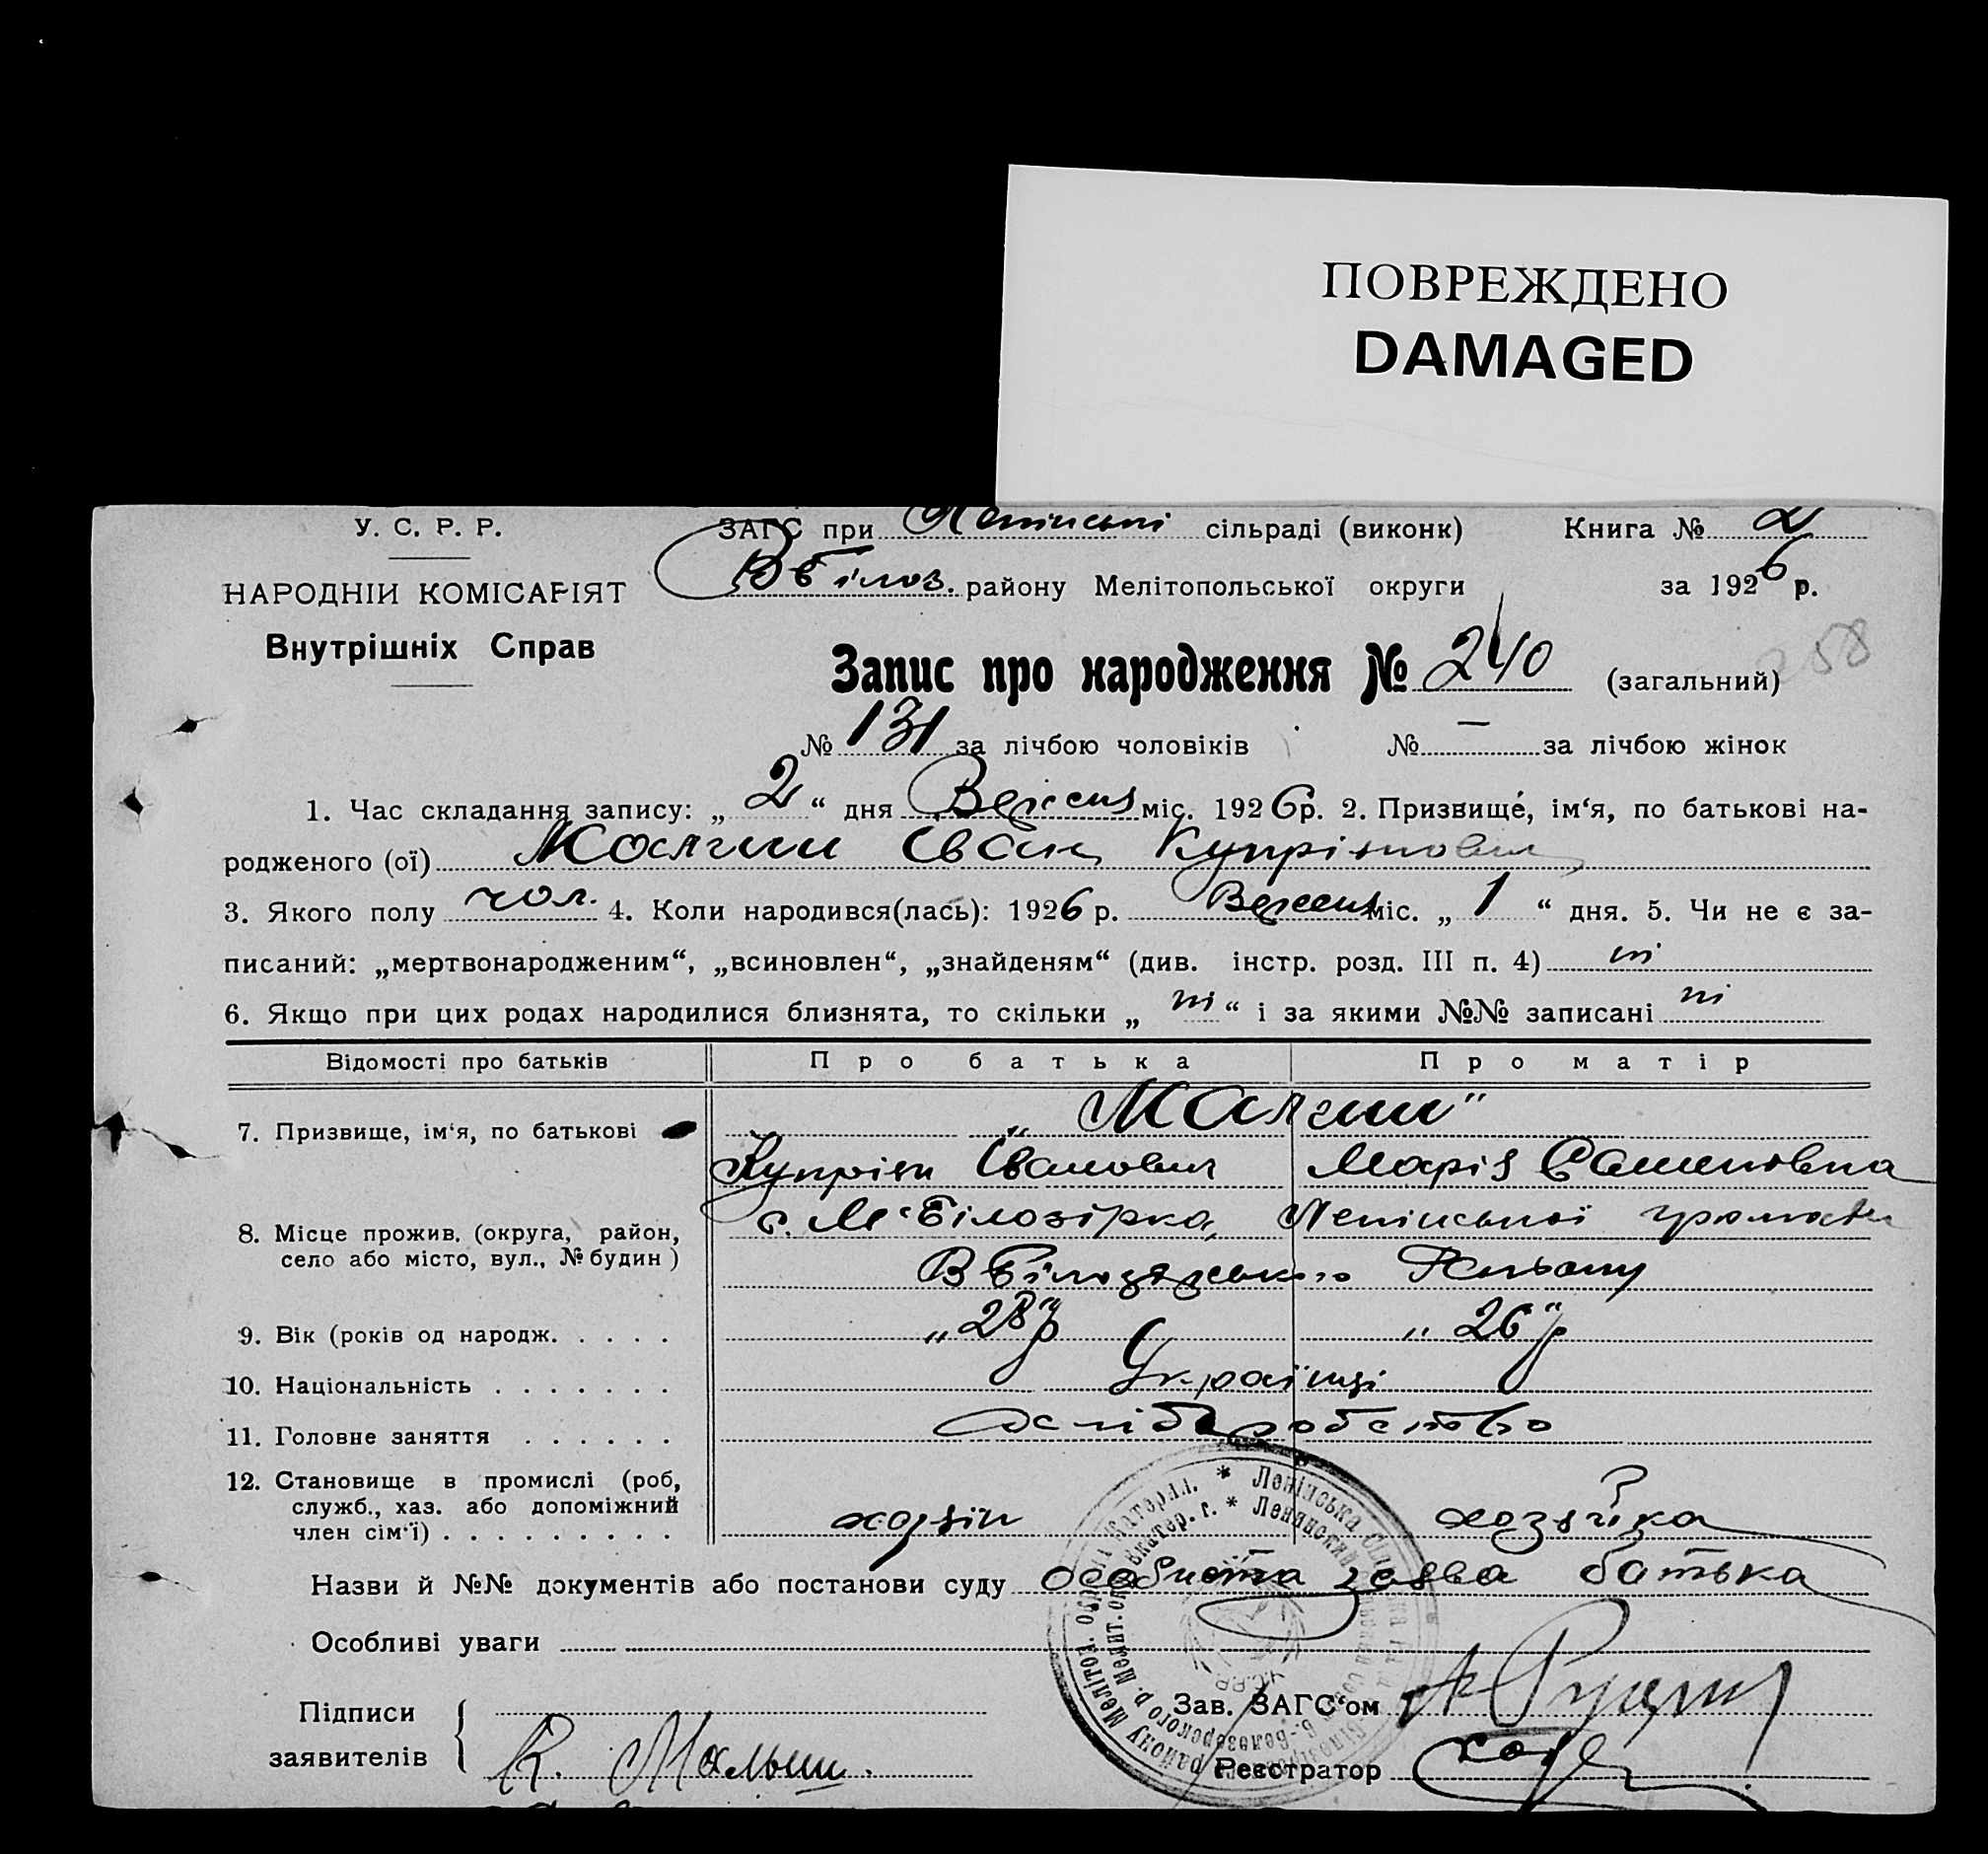 ПОВРЕЖДЕНО
DAMAGED
У. С. Р. Р.
ЗАГС при Ленінські сільраді (виконк)
Книга № 2
НАРОДНІЙ КОМІСАРІЯТ
Внутрішніх Справ
Вбілоз. району Мелітопольської округи
за 1926 р.
Запис про народження № 240 (загальний) 258
№ 131 за лічбою чоловіків № — за лічбою жінок
1. Час складання запису: „ 2 “ дня Вересня міс. 1926 р. 2. Призвище, ім‘я, по батькові на-
родженого (ої) Іван Купріянович
3. Якого полу чол. 4. Коли народився(лась): 1926 р. Вересня міс. „ 1 “ дня. 5. Чи не є за-
писаний: „мертвонародженим“, „всиновлен“, „знайденям“ (див. інстр. розд. III п. 4) ні
6. Якщо при цих родах народилися близнята, то скільки „ ні “ і за якими №№ записані ні
Відомості про батьків Про батька Про матір
7. Призвище, ім‘я, по батькові
Купріян Іванович Марія
8. Місце прожив. (округа, район,
село або місто, вул., № будин )
с. М Білозірка, Ленінської громади
ВБілозерського
9. Вік (років од народж. . . . . „28“р „26“р
10. Національність . . . . . . . Українці
11. Головне заняття . . . . . . хліборобство
12. Становище в промислі (роб,
служб., хаз. або допоміжний
член сім‘ї) . . . . . . . . . хозяін хозяйка
Назви й №№ документів або постанови суду особиста заява батька
Особливі уваги
Підписи
заявителів
К.
Зав. ЗАГС‘ом
Реєстратор